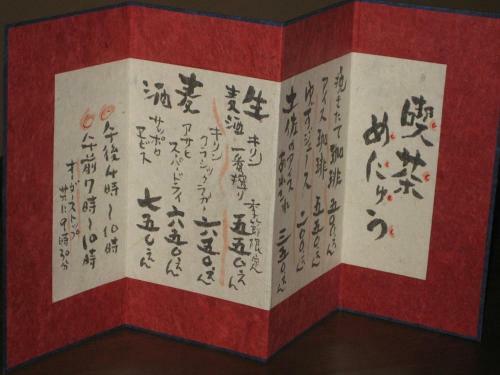 喫茶
めにゅう
淹きたて珈琲 五五〇えん
アイス珈琲 五五〇えん
ゆずジュース 三〇〇えん
土佐のアイス 三五〇えん
生麦酒
キリン 一番搾り 季節限定 五五〇えん
麦酒
キリン クラシックラガー 六五〇えん
アサヒ スーパードライ 六五〇えん
サッポロ エビス 七五〇えん
午後4時〜10時
午前7時〜10時
オーダーストップ
共に9時30分